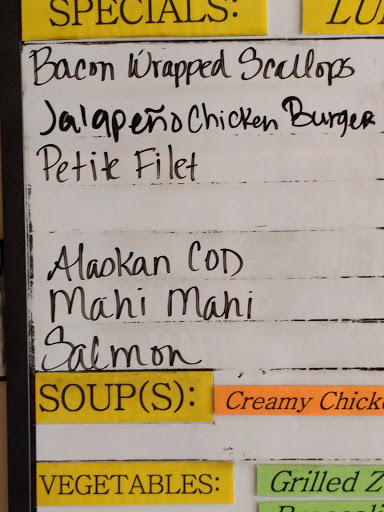 SPECIALS: LU
Bacon Wrapped Scallops
Jalapeño Chicken Burger
Petite Filet
Alaskan COD
Mahi Mahi
Salmon
SOUP(S): Creamy Chick
VEGETABLES: Grilled Z
Broccoli